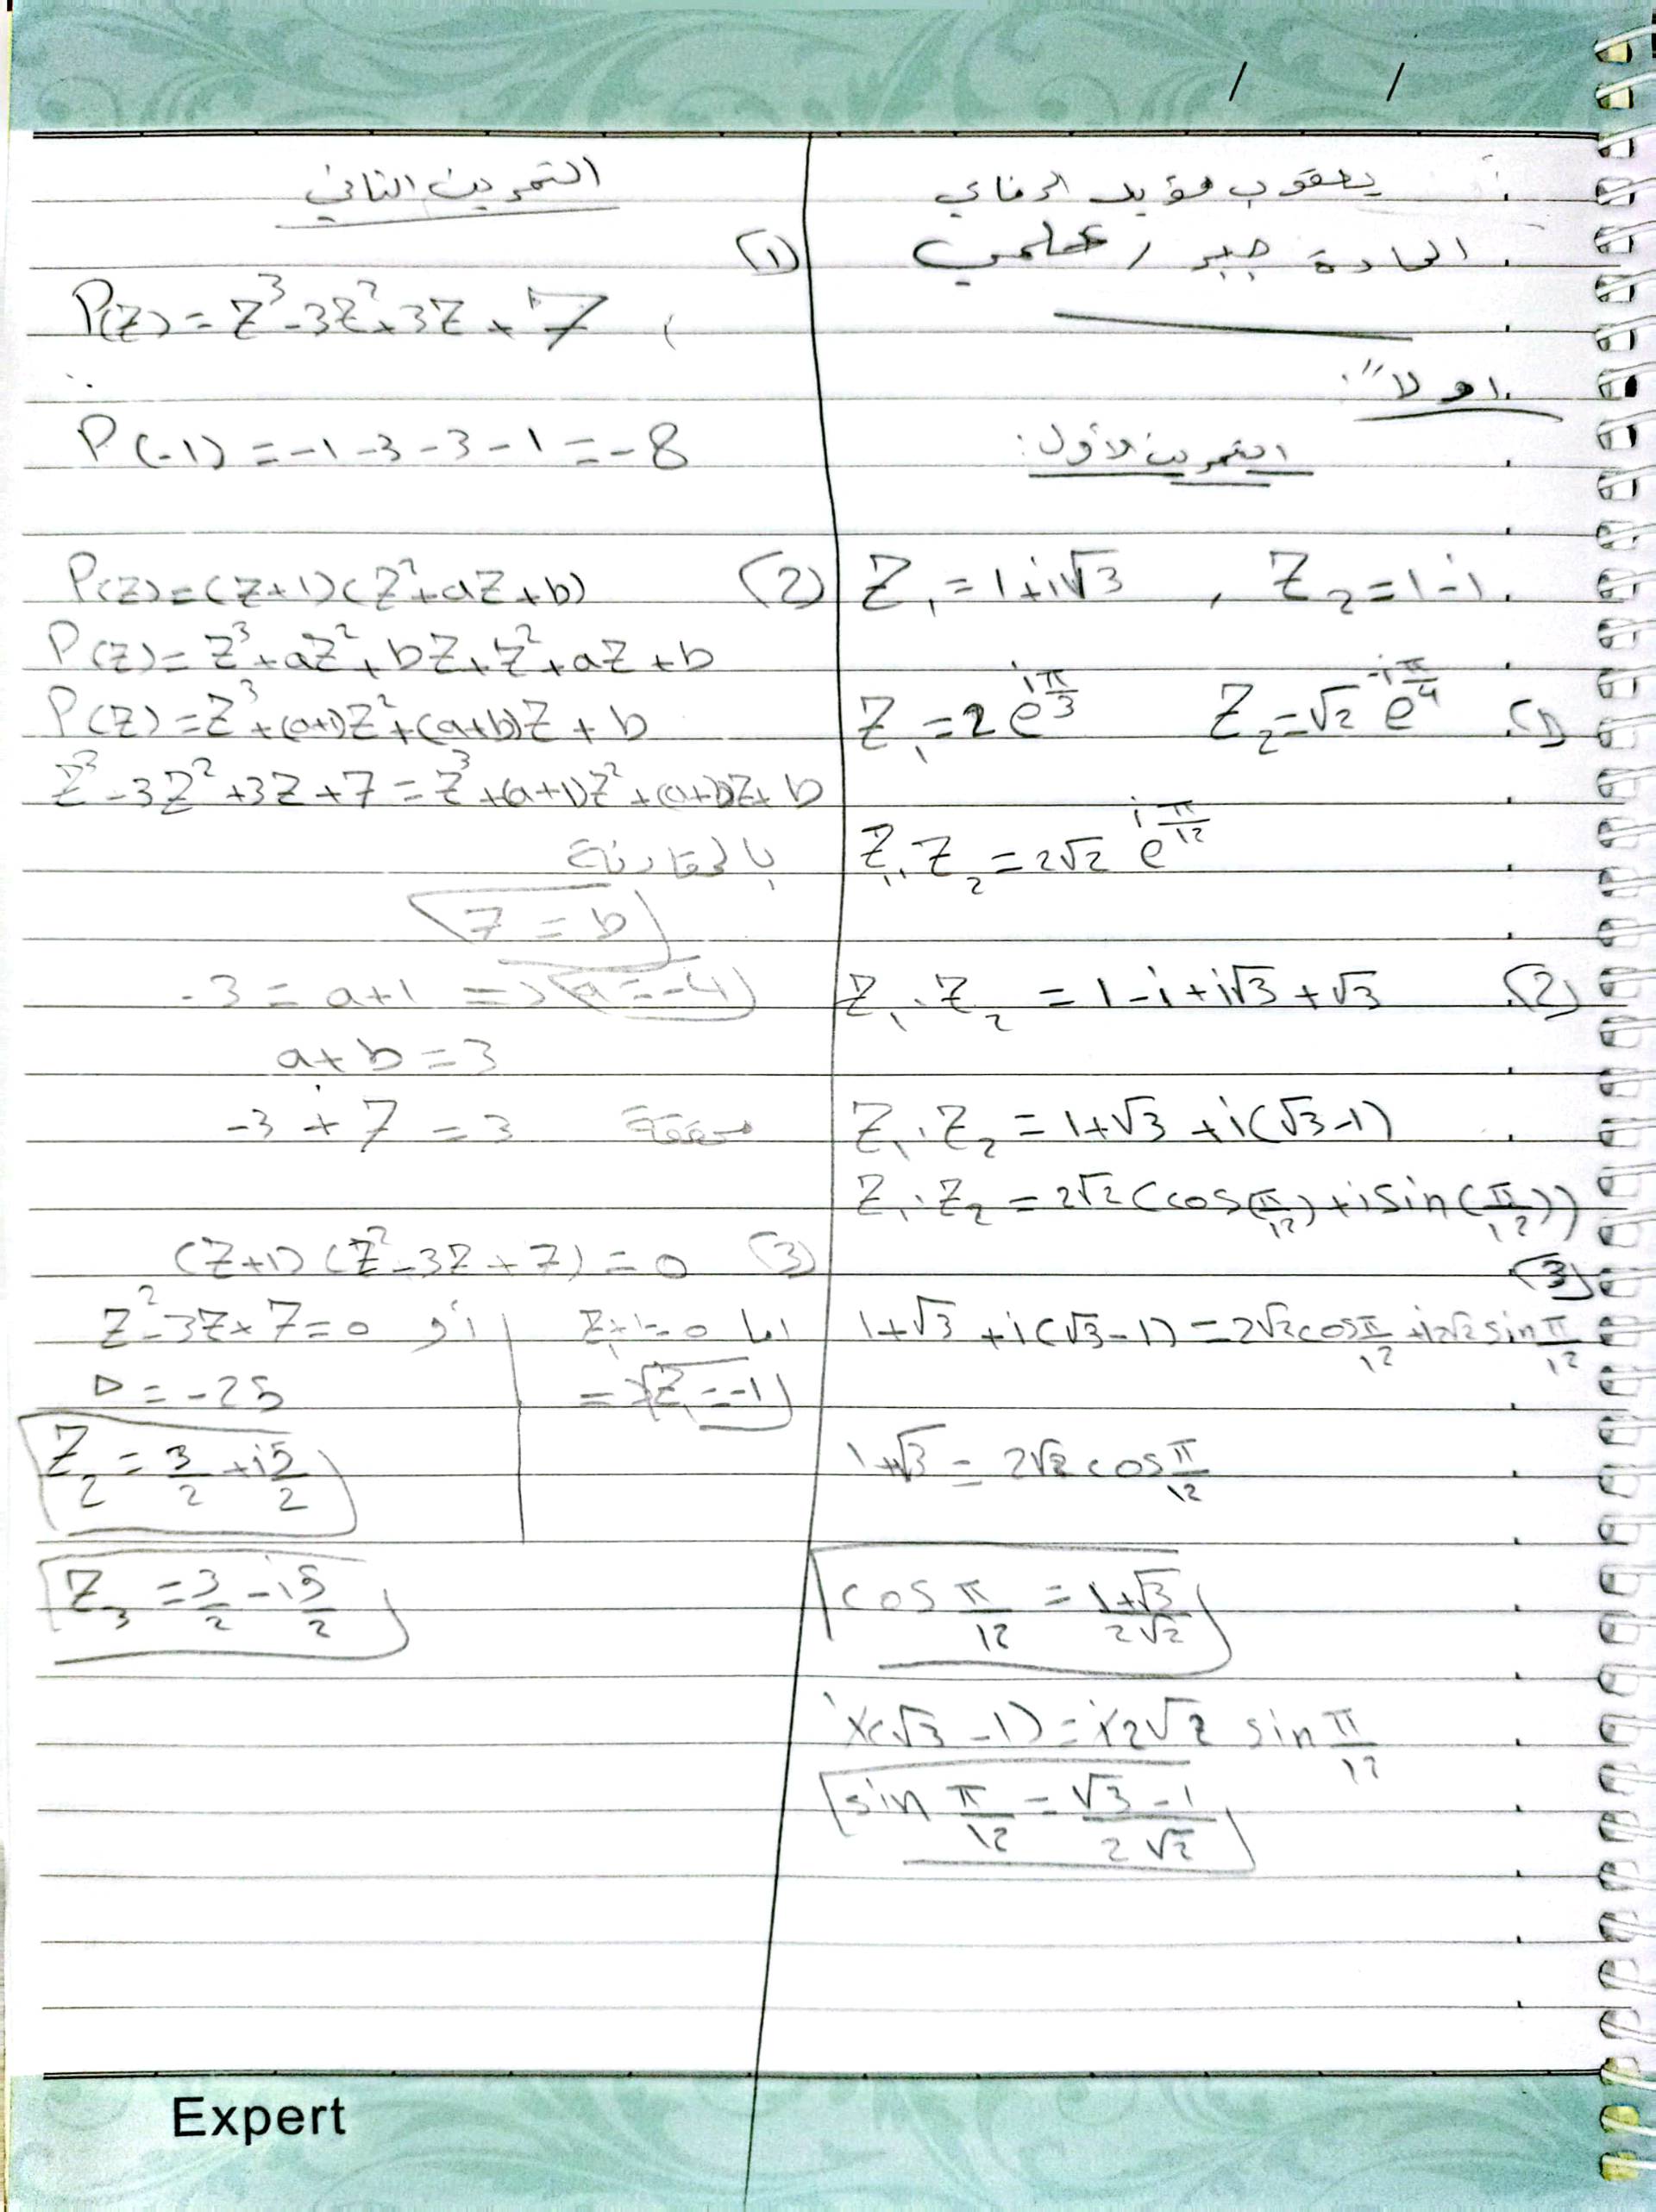 / /
يعقوب مؤيد الرفاعي
المادة جبر / علمي
اولاً:
التمرين الأول:
Z₁ = 1+i√3 , Z₂ = 1-i
(1) Z₁ = 2e^{iπ/3} Z₂ = √2 e^{-iπ/4}
Z₁.Z₂ = 2√2 e^{iπ/12}
(2) Z₁.Z₂ = 1-i+i√3+√3
Z₁.Z₂ = 1+√3+i(√3-1)
Z₁.Z₂ = 2√2(cos(π/12)+isin(π/12))
(3)
1+√3+i(√3-1) = 2√2cosπ/12+i2√2sinπ/12
1+√3 = 2√2cosπ/12
cosπ/12 = (1+√3)/(2√2)
i(√3-1) = i2√2 sinπ/12
sinπ/12 = (√3-1)/(2√2)
التمرين الثاني
(1)
P(Z) = Z³-3Z²+3Z+7
P(-1) = -1-3-3-1 = -8
(2) P(Z) = (Z+1)(Z²+aZ+b)
P(Z) = Z³+aZ²+bZ+Z²+aZ+b
P(Z) = Z³+(a+1)Z²+(a+b)Z+b
Z³-3Z²+3Z+7 = Z³+(a+1)Z²+(a+b)Z+b
بالمقارنة
7 = b
-3 = a+1 => a = -4
a+b = 3
-3+7 = 3 محققة
(3) (Z+1)(Z²-3Z+7) = 0
اما Z+1=0 أو Z²-3Z+7=0
=> Z₁ = -1
Δ = -25
Z₂ = 3/2+i5/2
Z₃ = 3/2-i5/2
Expert